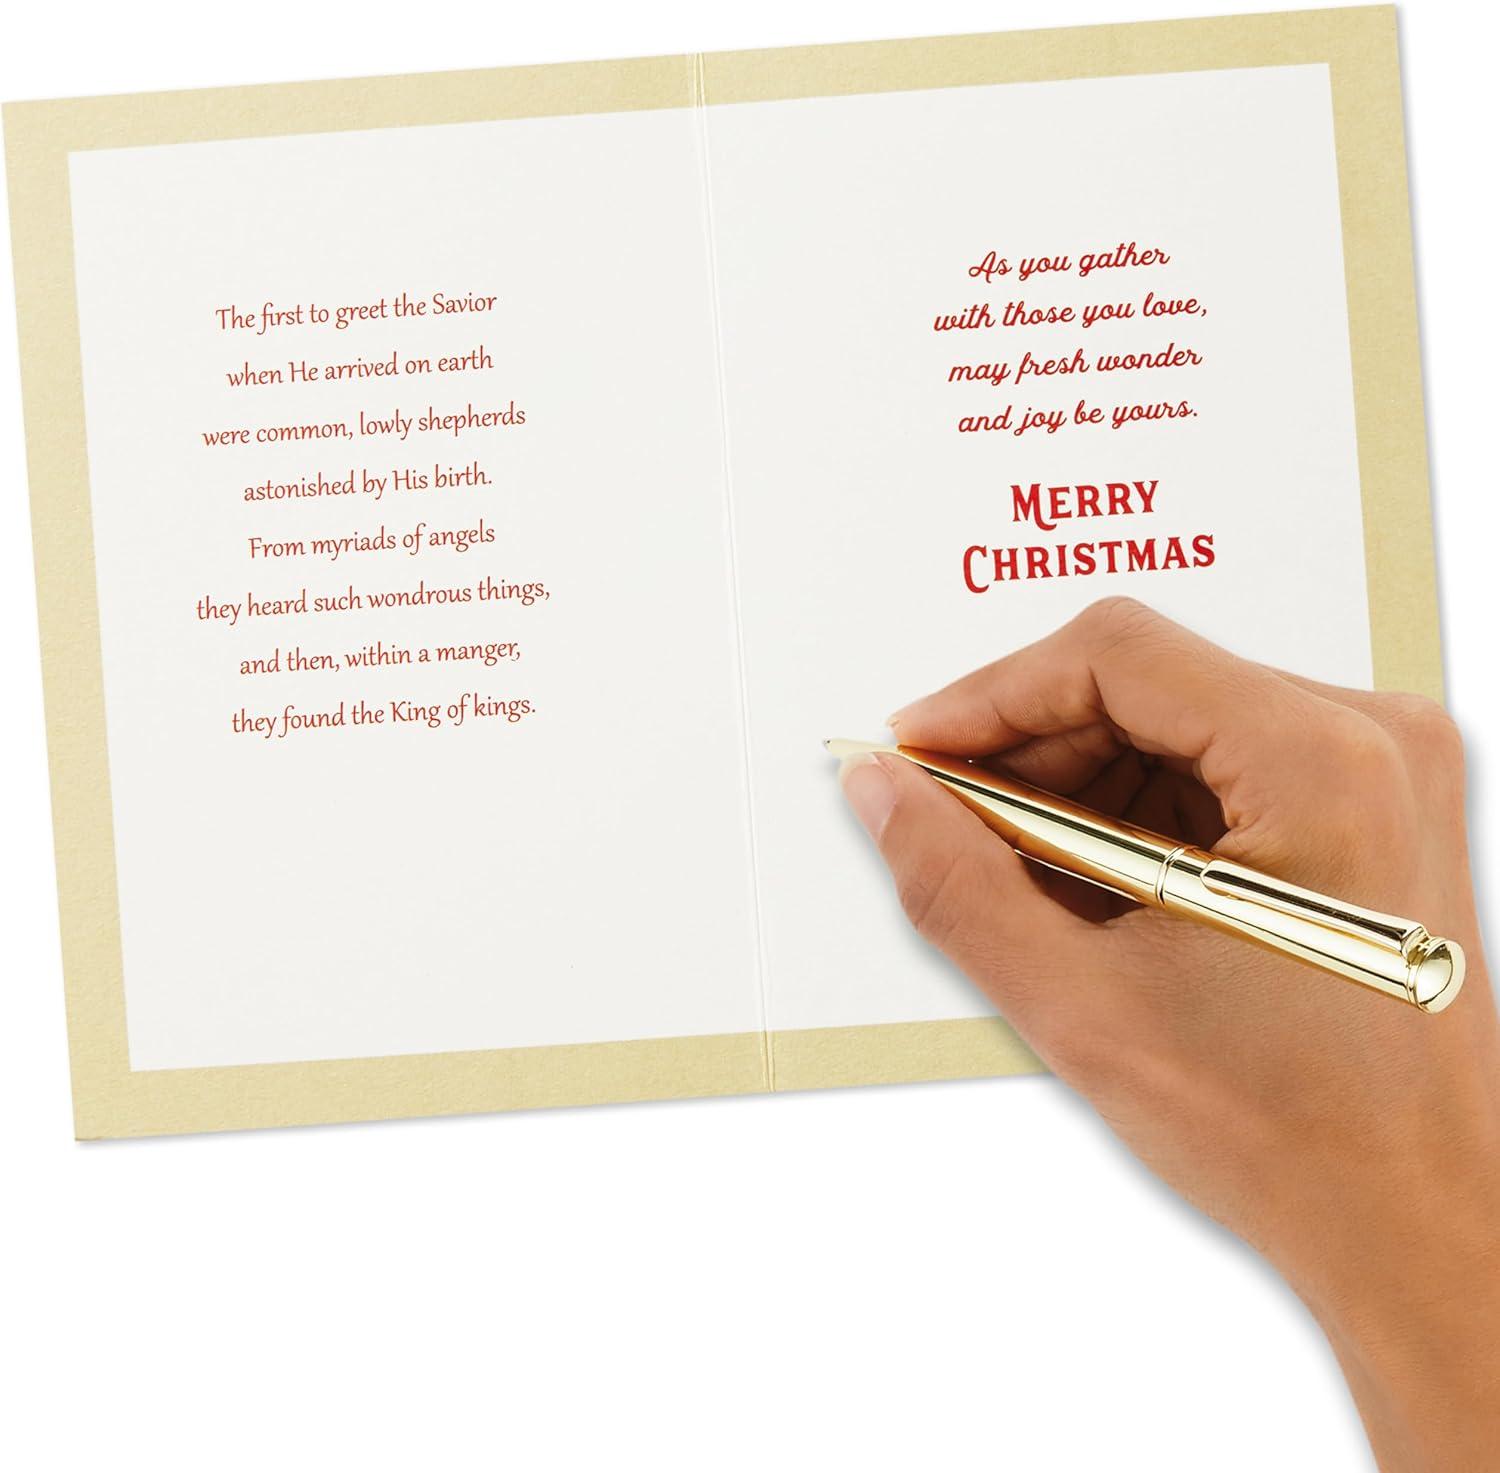 The first to greet the Savior
when He arrived on earth
were common, lowly shepherds
astonished by His birth.
From myriads of angels
they heard such wondrous things,
and then, within a manger,
they found the King of kings.
As you gather
with those you love,
may fresh wonder
and joy be yours.
MERRY
CHRISTMAS